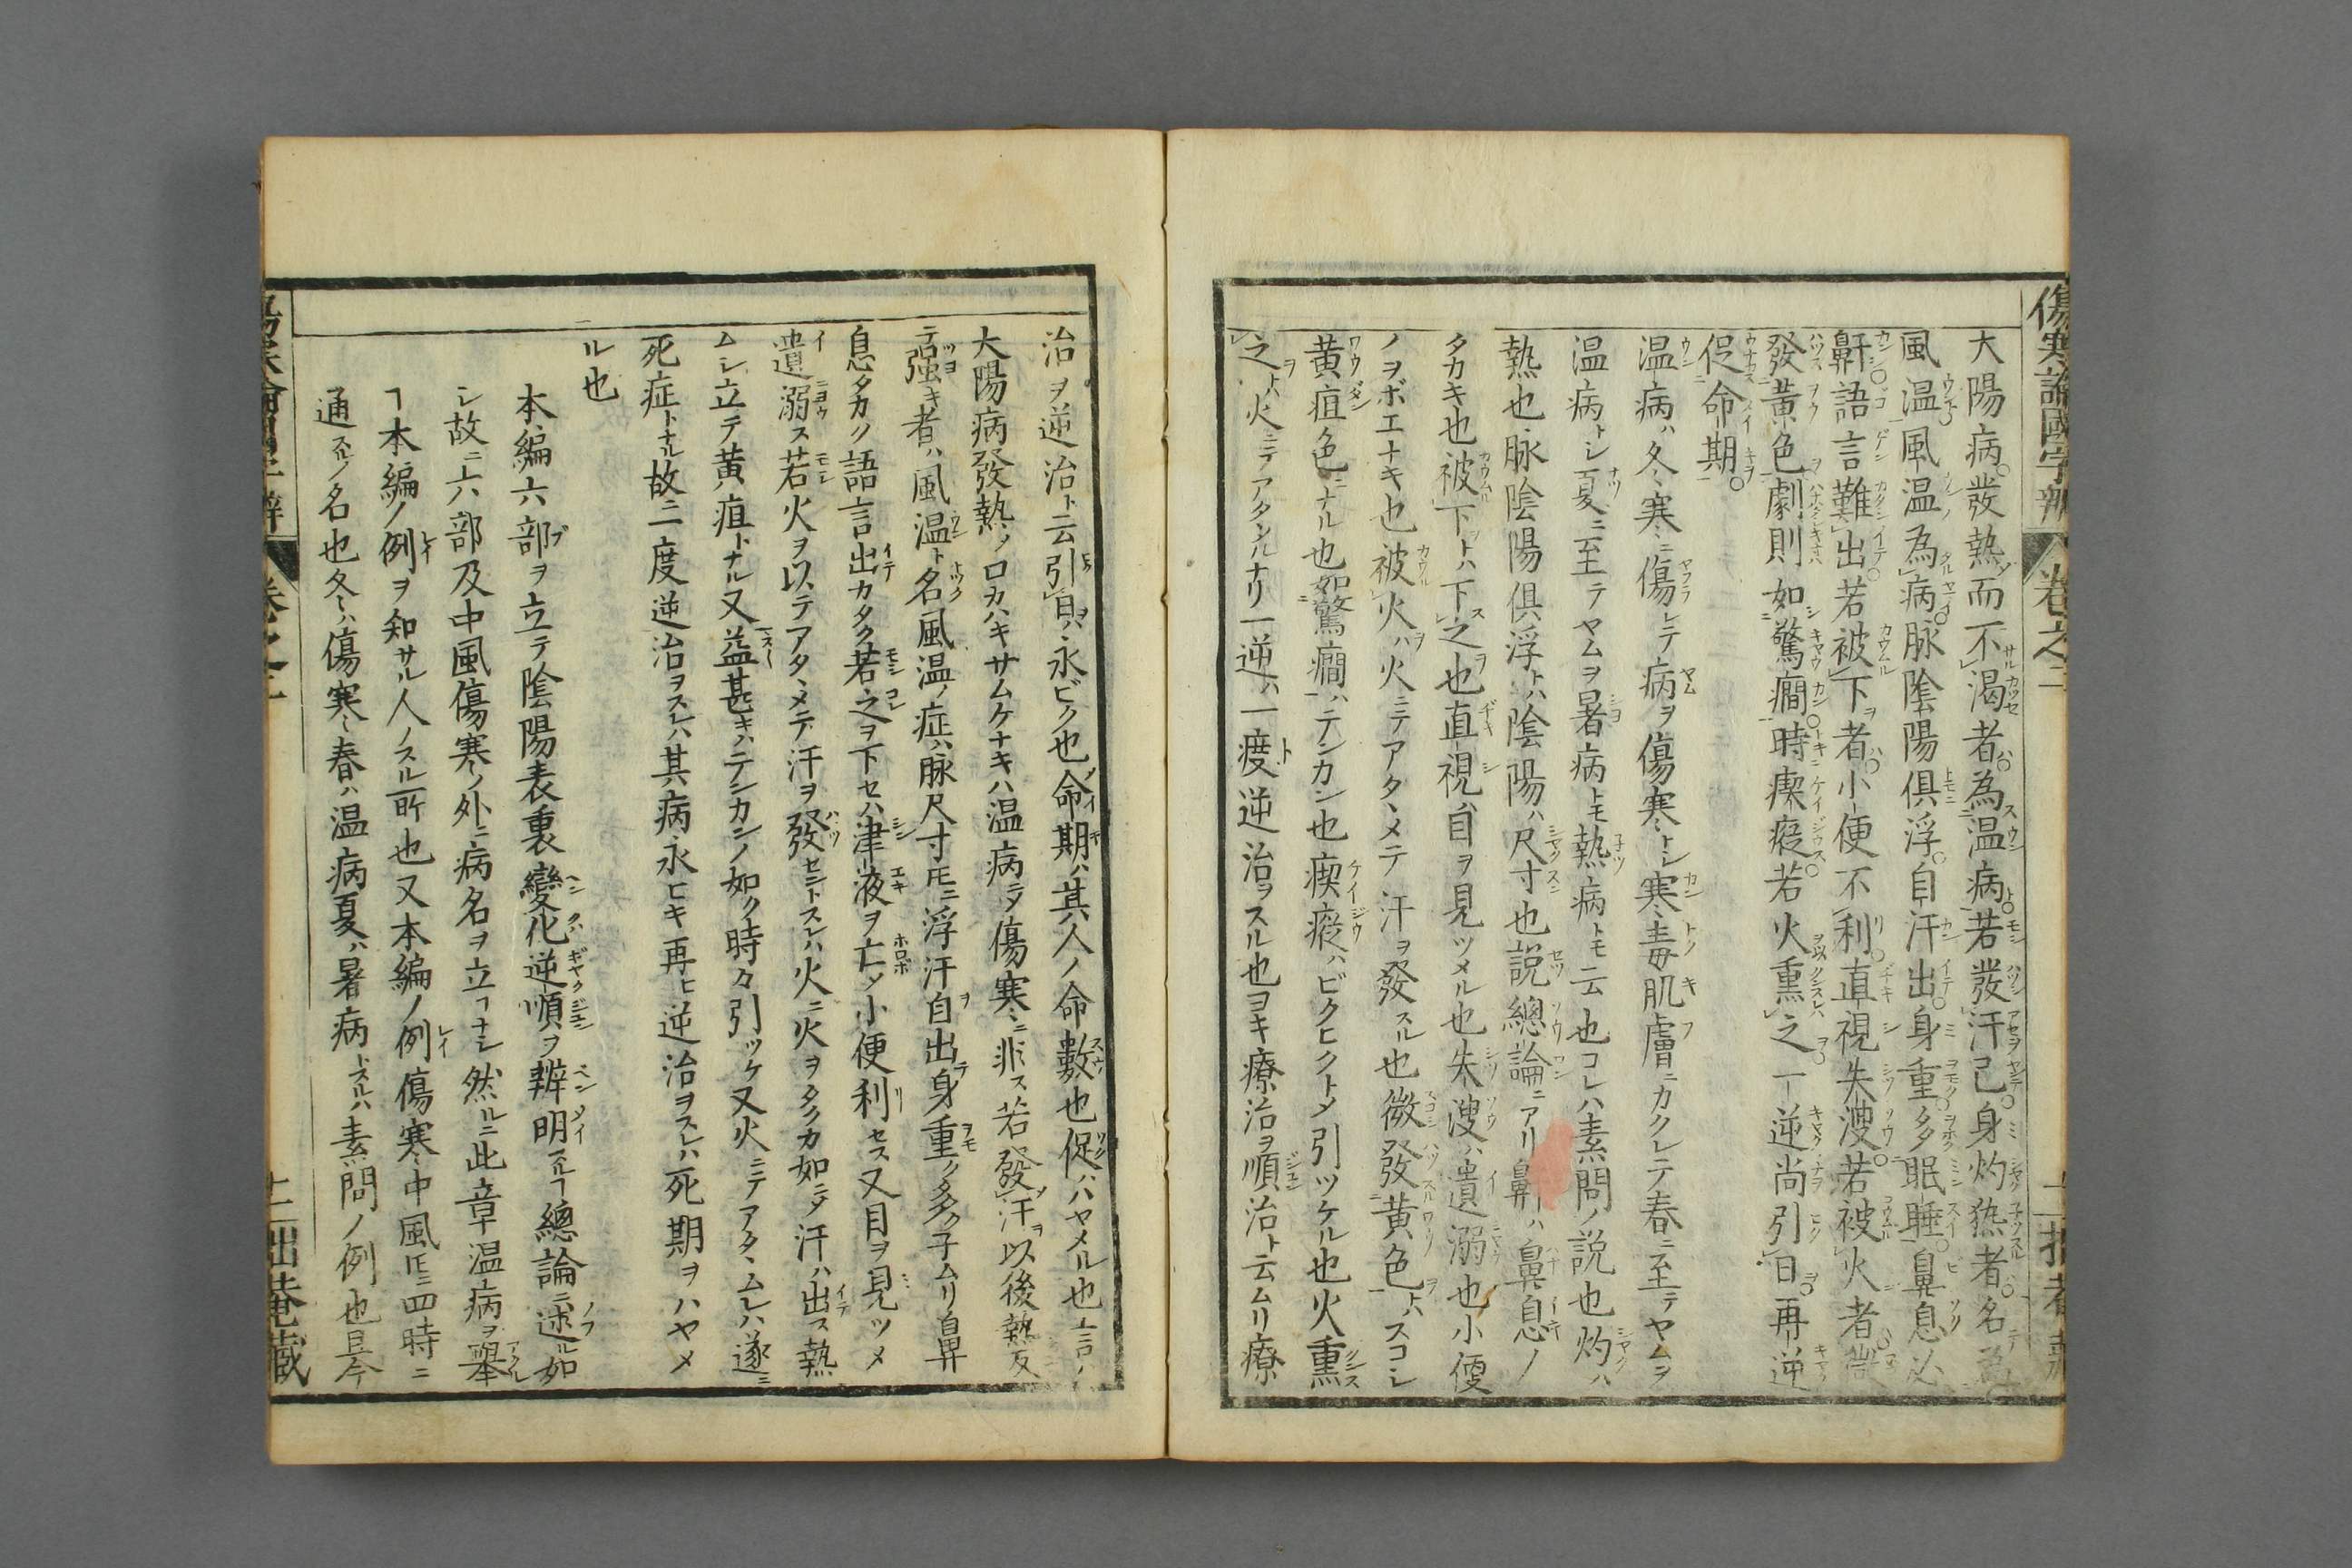 傷寒論國字辨 卷之二
大陽病發熱而不渴者為温病若發汗已身灼𤍠者名為
風温風温為病脉陰陽俱浮自汗出身重多眠睡鼻息必
鼾語言難出若被下者小便不利直視失溲若被火者微
發黃色劇則如驚癇時瘈瘲若火熏之一逆尚引日再逆
促命期
温病ハ冬寒ニ傷レテ病ヲ傷寒トシ寒毒肌膚ニカクレテ春ニ至テヤムヲ
温病トシ夏ニ至テヤムヲ暑病トモ熱病トモ云也コレハ素問ノ説也灼ハ
熱也脉陰陽俱浮トハ陰陽ハ尺寸也説總論ニアリ鼾ハ鼻息ノ
タカキ也被下トハ下之也直視ハ目ヲ見ツメル也失溲ハ遺溺也小便
ノヲボエナキ也被火ハ火ニテアタヽメテ汗ヲ發スル也微發黃色トハスコシ
黃疸色ニナル也如驚癇ハテンカン也瘈瘲ハビクヒクトメ引ツケル也火熏
之トハ火ニテアタヽルナリ一逆ハ一度逆治ヲスル也ヨキ療治ヲ順治ト云ムリ療
治ヲ逆治ト云引日ハ永ビク也命期ハ其人ノ命數也促ハハヤメル也言ハ
大陽病發熱ノロカハキサムケナキハ温病ニメ傷寒ニ非ス若發汗ヲ以後熱反
テ强キ者ハ風温ト名風温ノ症ハ脉尺寸𪜈ニ浮汗自出身重ク多ク子ムリ鼻
息タカク語言出カタク若之ヲ下セハ津液ヲ亡メ小便利セス又目ヲ見ツメ
遺溺ス若火ヲ以テアタヽメテ汗ヲ發セントスレハ火ニ火ヲタクカ如ニメ汗ハ出ス熱
ムシ立テ黃疸トナル又益甚キハテンカンノ如ク時々引ツケ又火ニテアタヽムレハ遂ニ
死症トナル故ニ二度逆治ヲスレハ其病永ヒキ再ヒ逆治ヲスレハ死期ヲハヤメ
ル也
本編六部ヲ立テ陰陽表裏變化逆順ヲ辨明スルヿ總論ニ述ル如
シ故ニ六部及中風傷寒ノ外ニ病名ヲ立ヿナシ然ルニ此章温病ヲ舉
ヿ本編ノ例ヲ知サル人ノスル所也又本編ノ例傷寒中風𪜈ニ四時ニ
通スルノ名也冬ハ傷寒春ハ温病夏ハ暑病トスルハ素問ノ例也且今